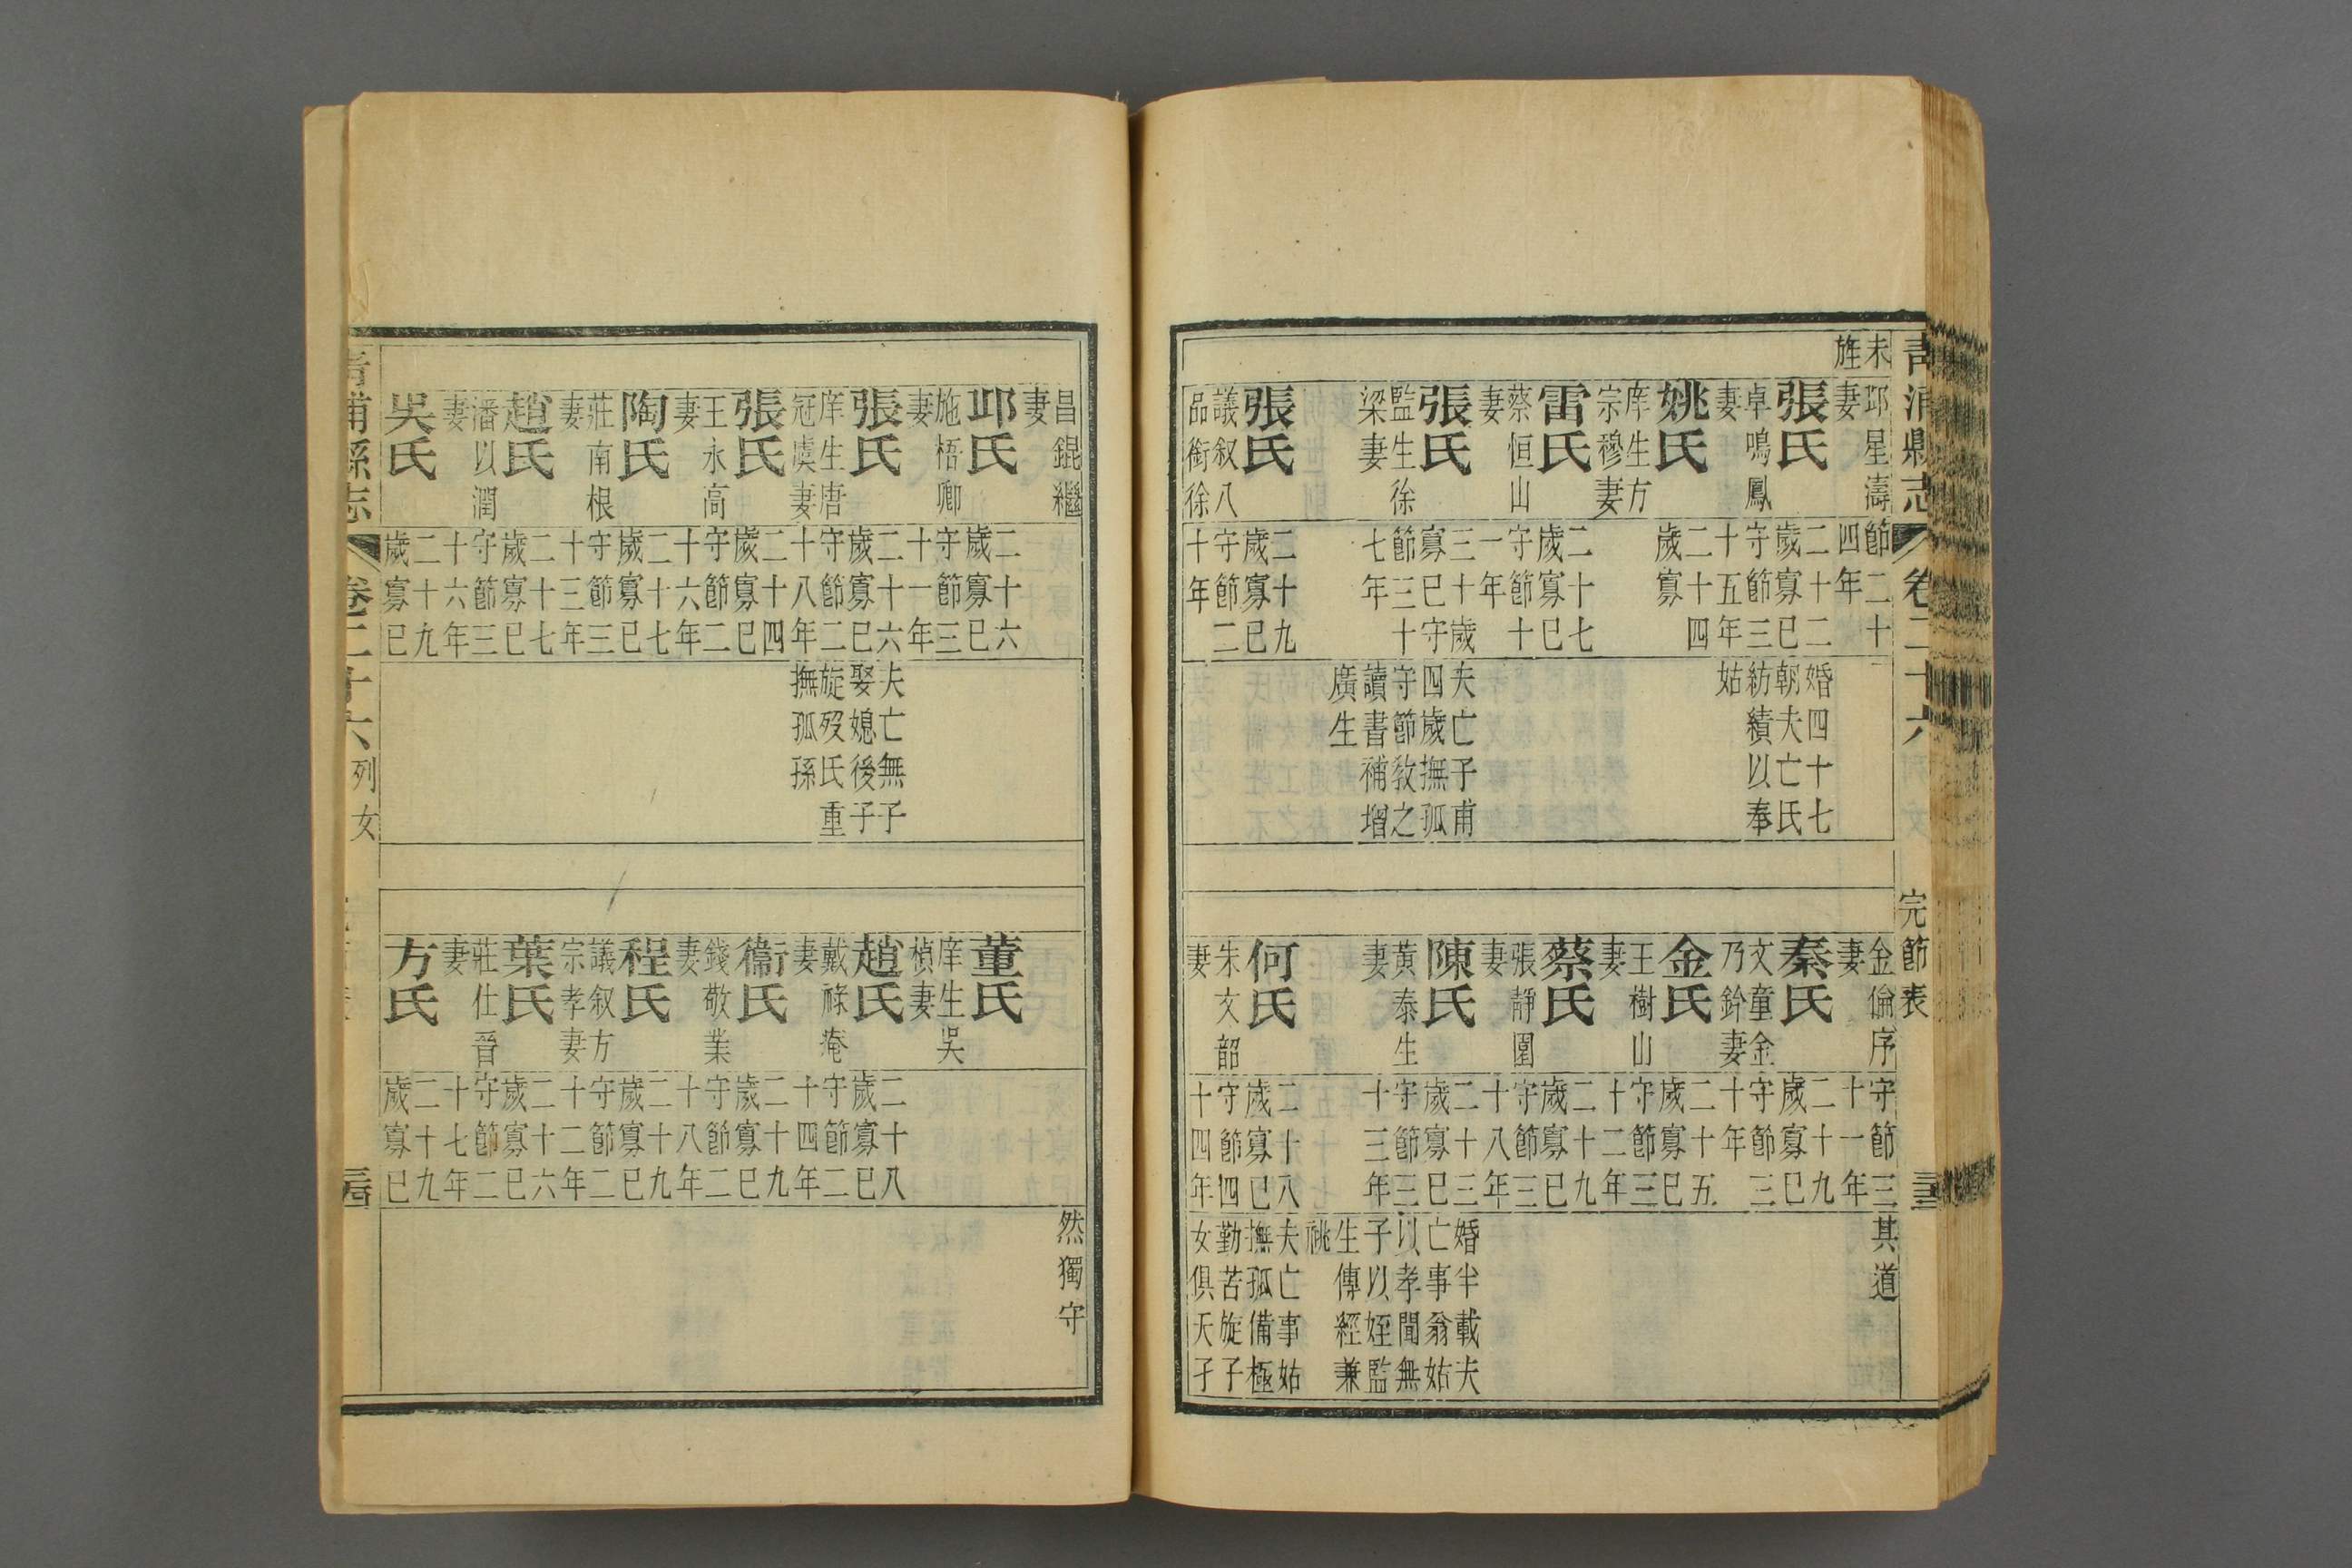 青浦縣志 卷二十六
完節表
未旌
邱星濤
妻
節二十
四年
張氏
二十二
歲寡已
婚四十七
朝夫亡氏
卓鳴鳳
妻
守節三
十五年
紡績以奉
姑
姚氏
二十四
歲寡
庠生方
宗穆妻
雷氏
二十七
歲寡已
蔡恒山
妻
守節十
一年
張氏
三十歲
寡已守
夫亡子甫
四歲撫孤
監生徐
梁妻
節三十
七年
守節教之
讀書補增
廣生
張氏
二十九
歲寡已
議叙八
品銜徐
守節二
十年
金倫序
妻
守節三
十一年
其道
秦氏
二十九
歲寡已
文童金
乃鈐妻
守節三
十年
金氏
二十五
歲寡已
王樹山
妻
守節三
十二年
蔡氏
二十九
歲寡已
張靜圍
妻
守節三
十八年
陳氏
二十三
歲寡已
婚半載夫
亡事翁姑
黃泰生
妻
守節三
十三年
以孝聞無
子以姪監
生傳經兼
祧
何氏
二十八
歲寡已
夫亡事姑
撫孤備極
朱文韶
妻
守節四
十四年
勤苦旋子
女俱夭孑
昌錕繼
妻
邱氏
二十六
歲寡已
施梧卿
妻
守節三
十一年
張氏
二十六
歲寡已
夫亡無子
娶媳後子
庠生唐
冠虞妻
守節二
十八年
旋歿氏重
撫孤孫
張氏
二十四
歲寡已
王永高
妻
守節二
十六年
陶氏
二十七
歲寡已
莊南根
妻
守節三
十三年
趙氏
二十七
歲寡已
潘以潤
妻
守節三
十六年
吳氏
二十九
歲寡已
然獨守
董氏
庠生吳
楨妻
趙氏
二十八
歲寡已
戴祿菴
妻
守節二
十四年
衞氏
二十九
歲寡已
錢敬業
妻
守節二
十八年
程氏
二十九
歲寡已
議叙方
宗孝妻
守節二
十二年
葉氏
二十六
歲寡已
莊仕晉
妻
守節二
十七年
方氏
二十九
歲寡已
青浦縣志 卷二十六 列女